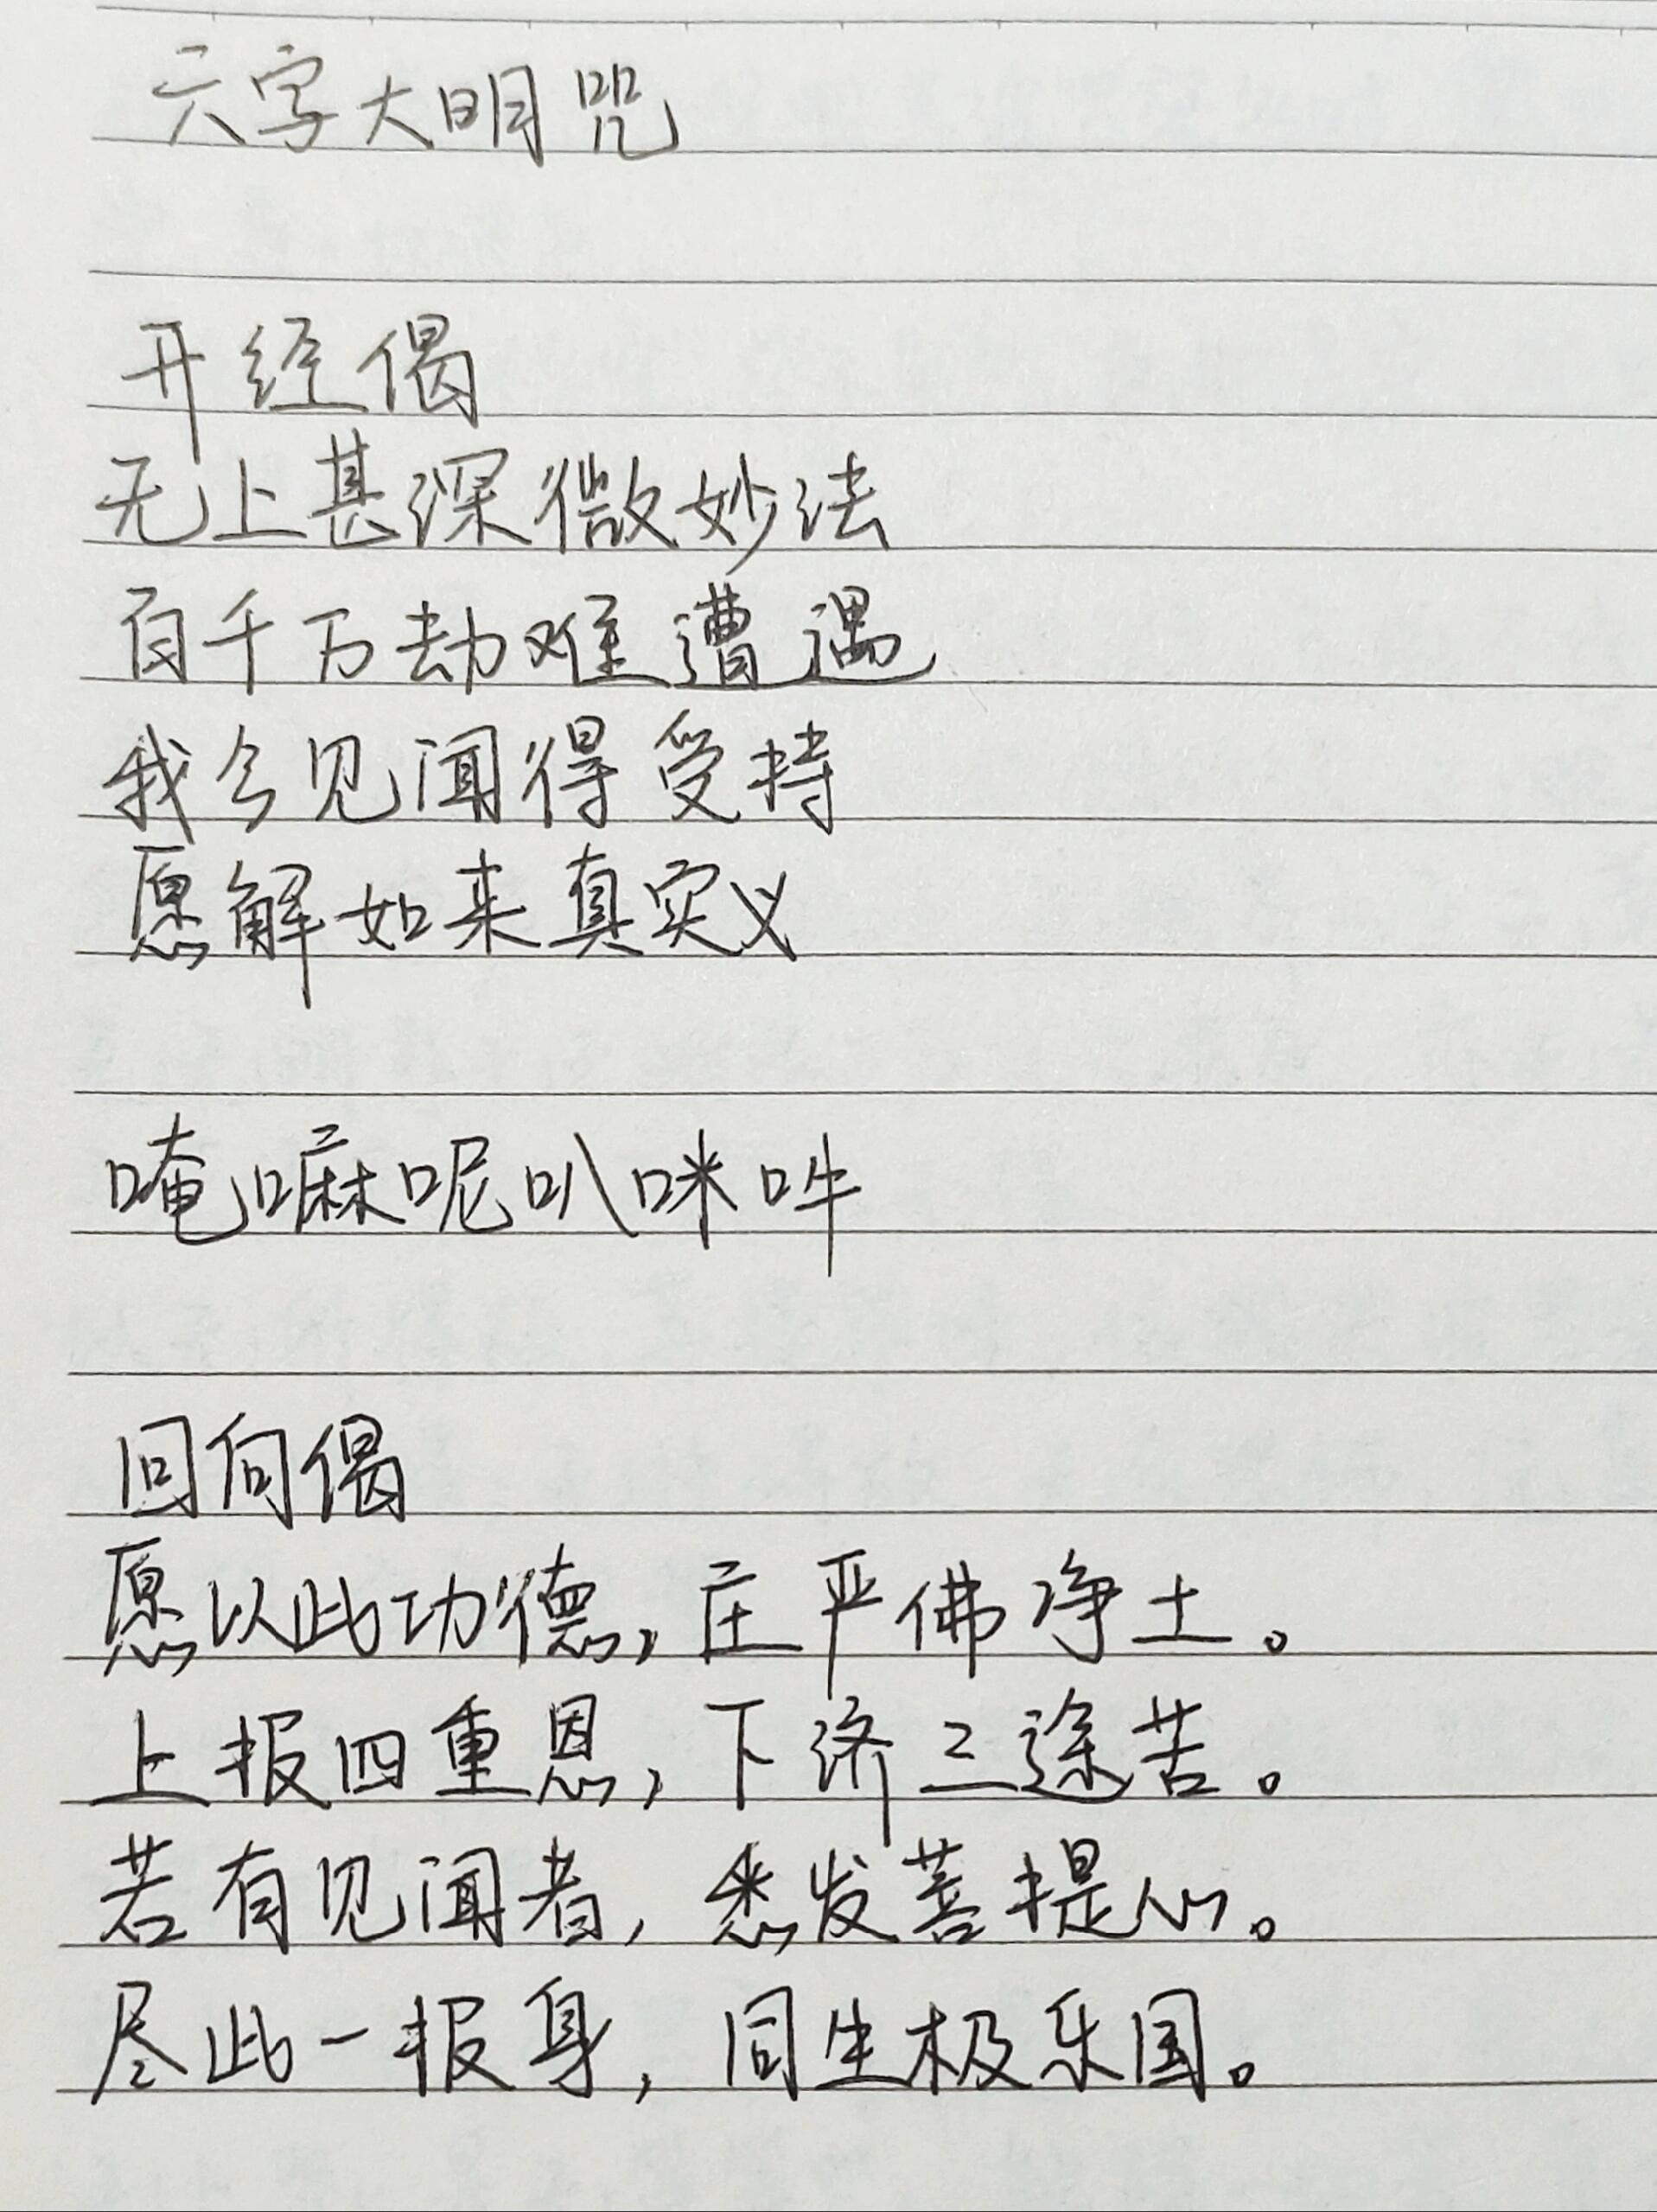 六字大明咒
开经偈
无上甚深微妙法
百千万劫难遭遇
我今见闻得受持
愿解如来真实义
唵嘛呢叭咪吽
回向偈
愿以此功德,庄严佛净土。
上报四重恩,下济三途苦。
若有见闻者,悉发菩提心。
尽此一报身,同生极乐国。